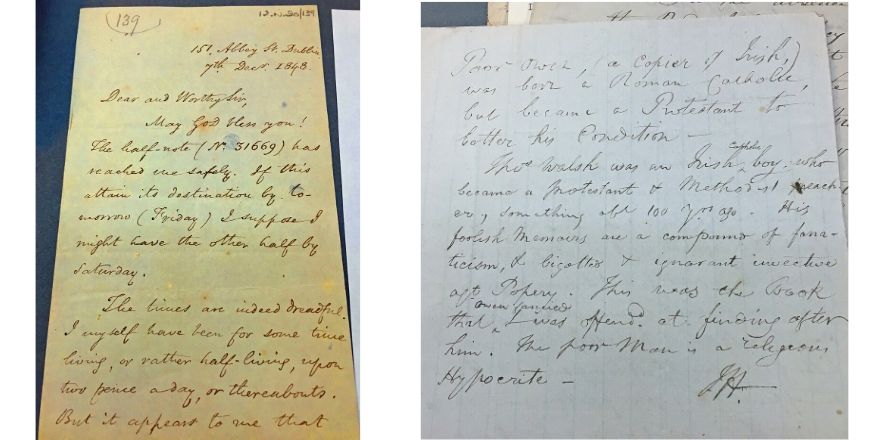 (139)
151, Abbey St. Dublin
7th Decr. 1848.
Dear and Worthy Sir,
May God bless you!
The half-note (No. 31669) has
reached me safely. If this
attain its destination by to-
morrow (Friday) I suppose I
might have the other half by
Saturday.
The times are indeed dreadful.
I myself have been for some time
living, or rather half-living, upon
two pence a day, or thereabouts.
But it appears to me that
Poor Owen, (a copier of Irish,)
was born a Roman Catholic,
but became a Protestant to
better his Condition —
Thos. Walsh was an Irish Catholic boy who
became a Protestant & Methodist preach
er, something abt 100 yrs ago. His
foolish Memoirs are a compound of fana-
ticism, & bigotted & ignorant invective
agst Popery. This was the Book
that Owen fancied I was offend. at finding after
him. The poor Man is a religious
Hypocrite —
JH